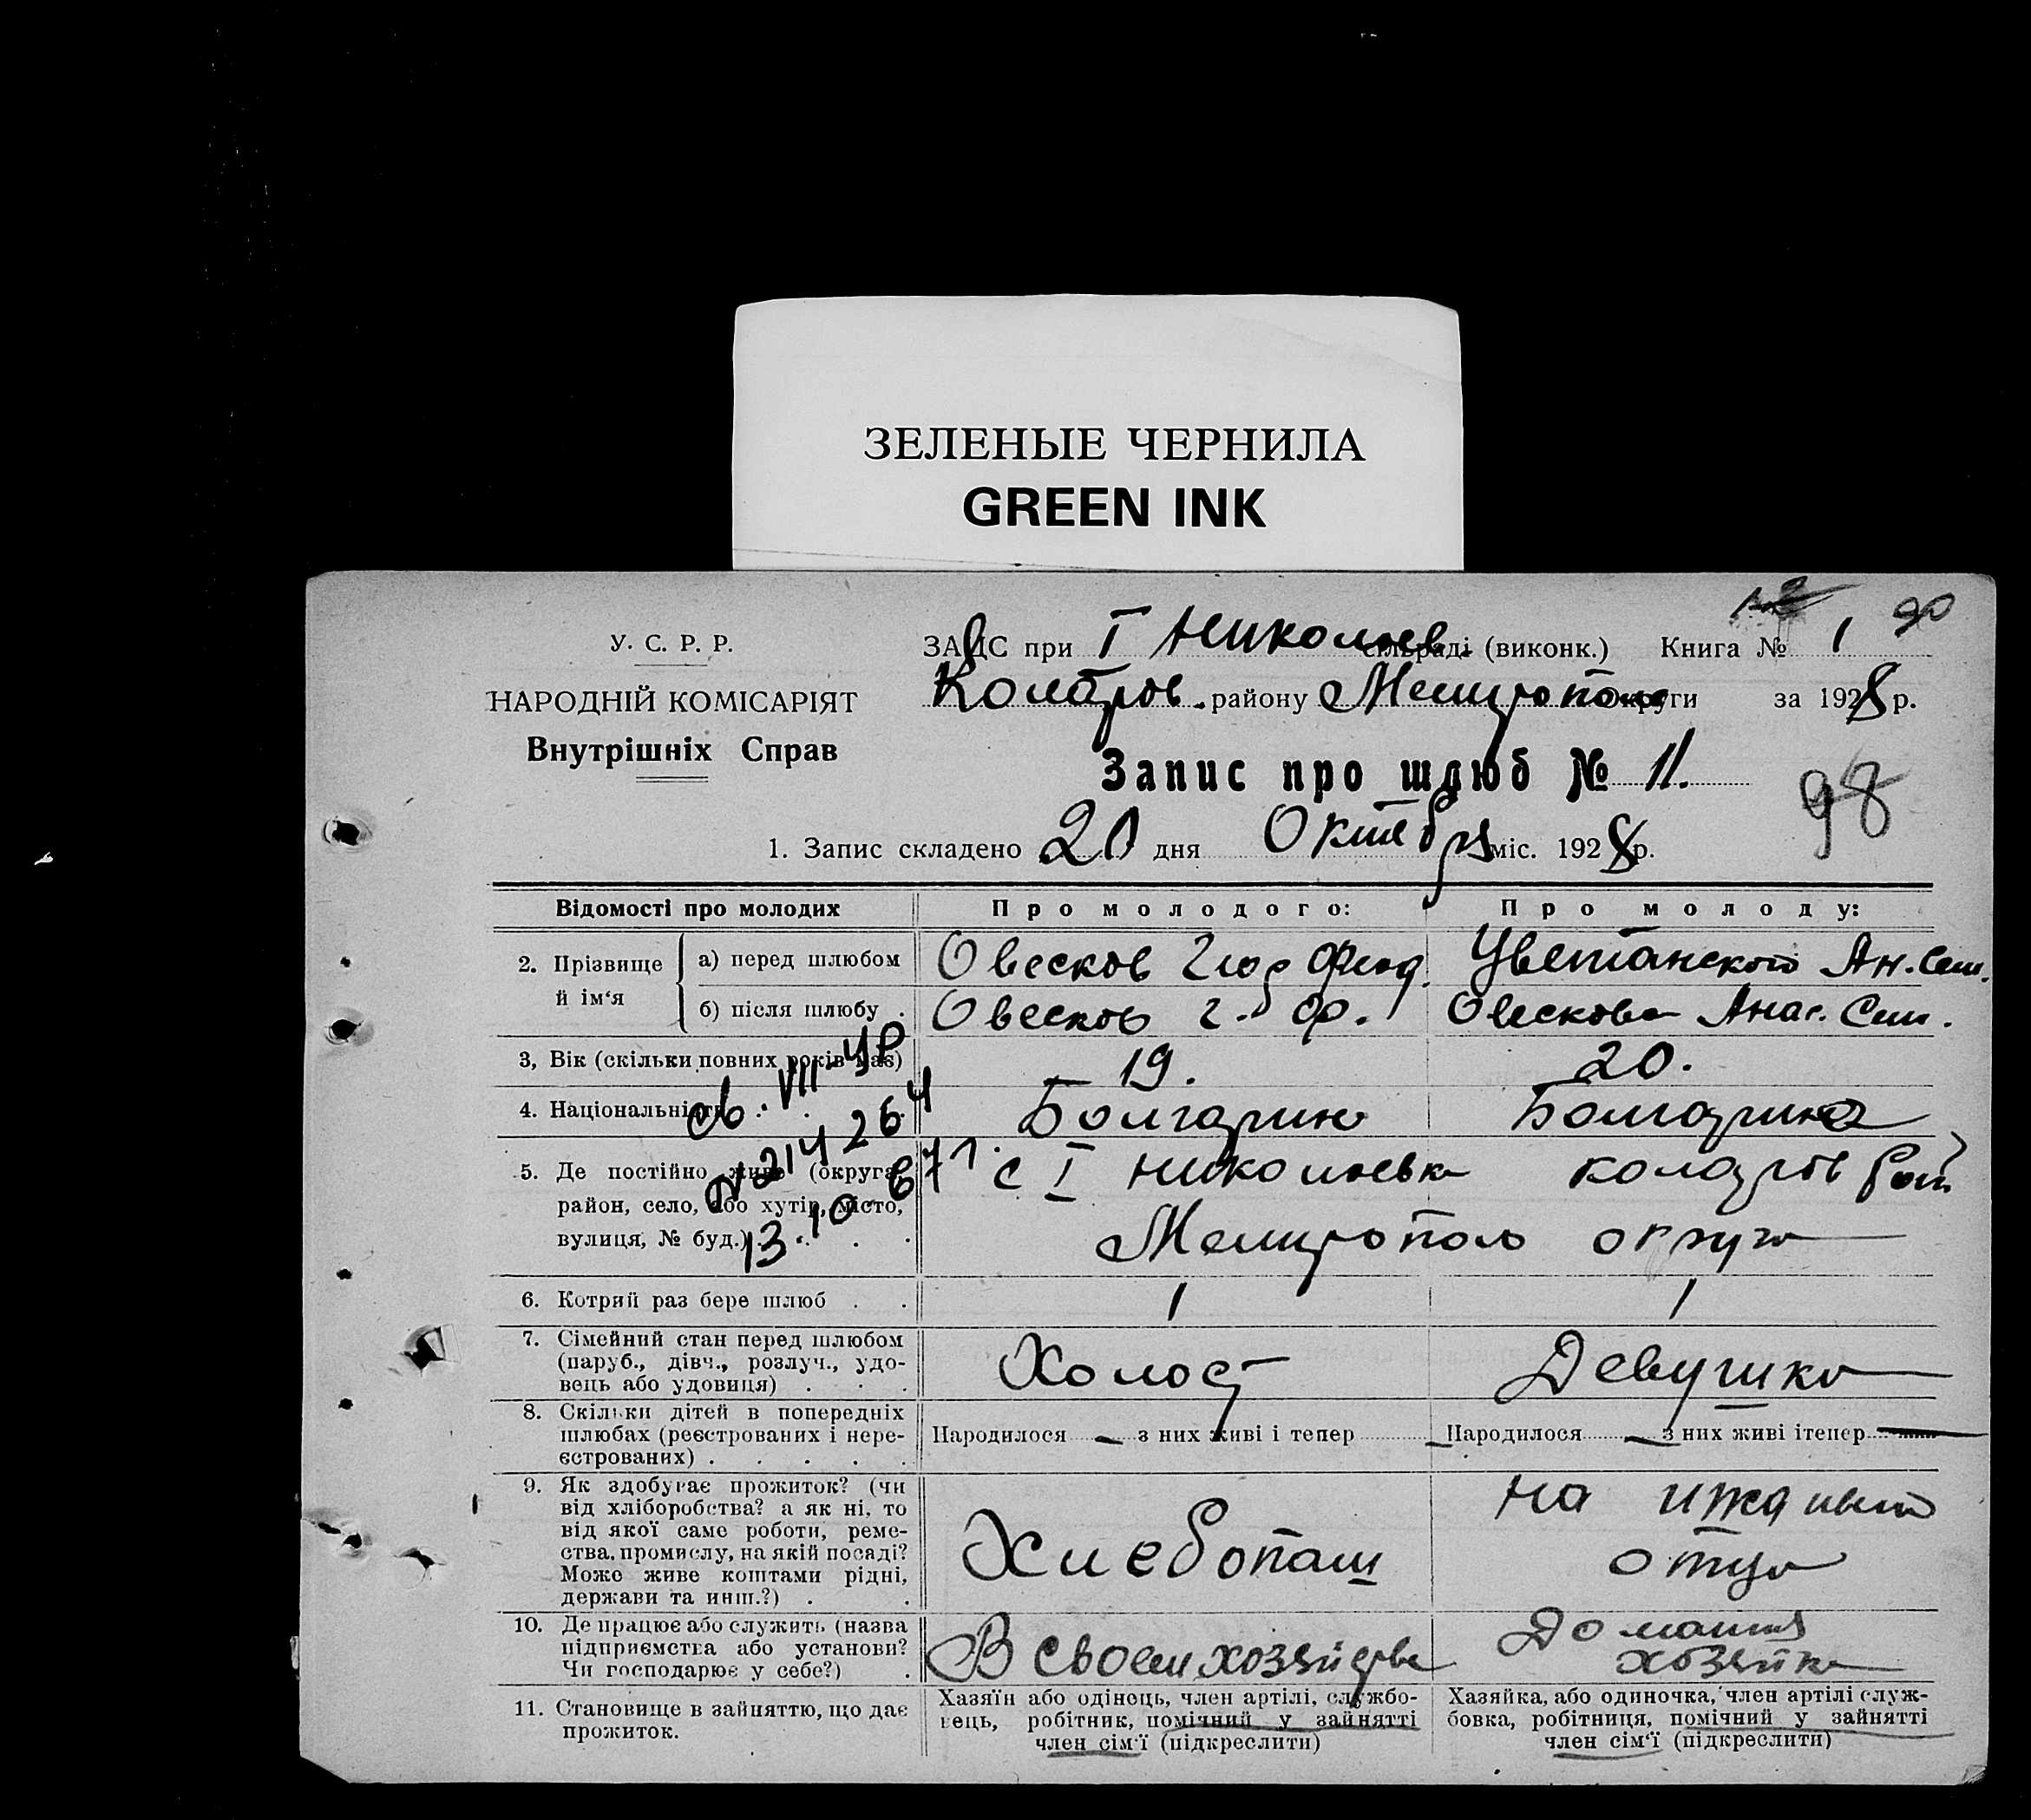 ЗЕЛЕНЫЕ ЧЕРНИЛА
GREEN INK
90
У. С. Р. Р.
НАРОДНІЙ КОМІСАРІЯТ
Внутрішніх Справ
ЗАГС при І Николаев. сільраді (виконк.) Книга № 1
Коларов. району Мелитополь округи за 1928 р.
Запис про шлюб № 11.
98
1. Запис складено 20 дня Октября міс. 1928 р.
Відомості про молодих Про молодого: Про молоду:
2. Прізвище й ім‘я
а) перед шлюбом Овесков Феод. Цветанского Ан. Сем.
б) після шлюбу . Овесков г. ф. Овескова Анас. Сем.
3, Вік (скільки повних років має) 19. 20.
4. Національність Болгарин Болгарина
св. VII-УР
№ 214264
13.10.67 г.
5. Де постійно живе (округа, район, село, або хутір, місто, вулиця, № буд.) . . .
с І Николаевка Коларов рай
Мелитополь округа
6. Котрий раз бере шлюб . . 1 1
7. Сімейний стан перед шлюбом
(паруб., дівч., розлуч., удо-
вець або удовиця) . . .
Холост Девушка
8. Скільки дітей в попередніх
шлюбах (реєстрованих і нере-
єстрованих) . . . . .
Народилося — з них живі і тепер
Народилося — з них живі і тепер —
9. Як здобуває прожиток? (чи
від хліборобства? а як ні, то
від якої саме роботи, реме-
ства, промислу, на якій посаді?
Може живе коштами рідні,
держави та инш.?) . .
Хлебопаш
на иждивен
отца
10. Де працює або служить (назва
підприємства або установи?
Чи господарює у себе?) .
В своем хозяйстве
Домашня
хозяйка
11. Становище в зайняттю, що дає
прожиток.
Хазяїн або одінець, член артілі, службо-
вець, робітник, помічний у зайнятті
член сім‘ї (підкреслити)
Хазяйка, або одиночка, член артілі служ-
бовка, робітниця, помічний у зайнятті
член сім‘ї (підкреслити)